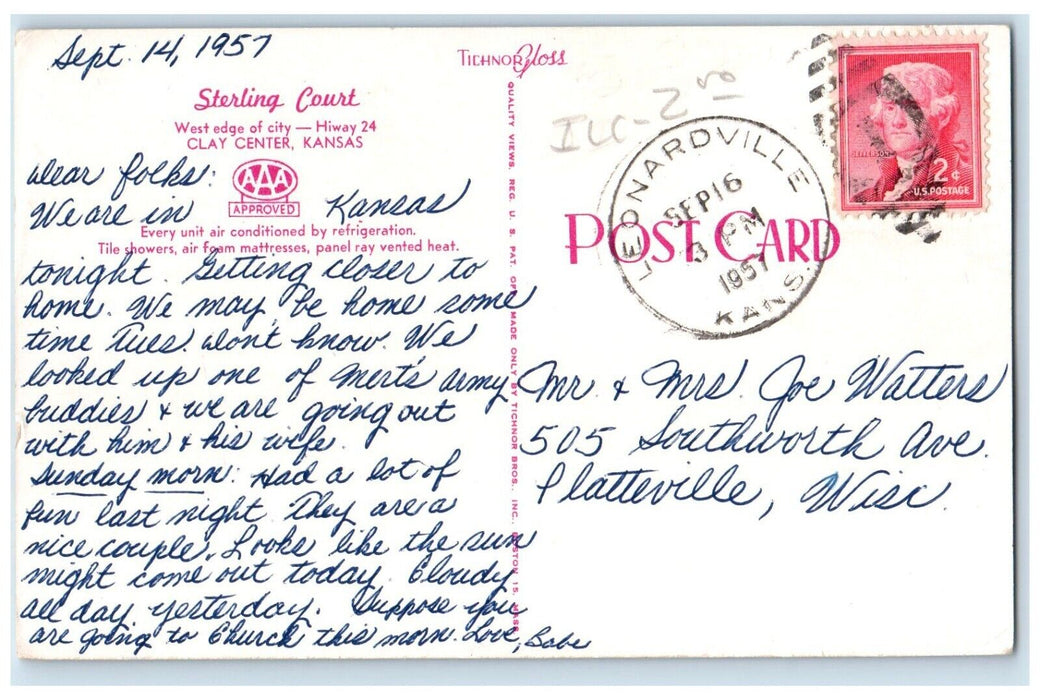 Sept. 14, 1957
Sterling Court
West edge of city — Hiway 24
CLAY CENTER, KANSAS
AAA
APPROVED
Every unit air conditioned by refrigeration.
Tile showers, air foam mattresses, panel ray vented heat.
Dear folks:
We are in Kansas
tonight. Getting closer to
home. We may be home some
time Tues. Don't know. We
looked up one of Mert's army
buddies & we are going out
with him & his wife.
Sunday morn: Had a lot of
fun last night. They are a
nice couple. Looks like the sun
might come out today. Cloudy
all day yesterday. Suppose you
are going to Church this morn. Love, Babe
TICHNOR Gloss
QUALITY VIEWS, REG. U. S. PAT. OFF. MADE ONLY BY TICHNOR BROS., INC., BOSTON 15, MASS.
ILC-2 00
POST CARD
LEONARDVILLE
SEP 16
3 PM
1957
KANS.
JEFFERSON
2¢
U.S. POSTAGE
Mr. & Mrs. Joe Watters
505 Southworth Ave.
Platteville, Wisc.